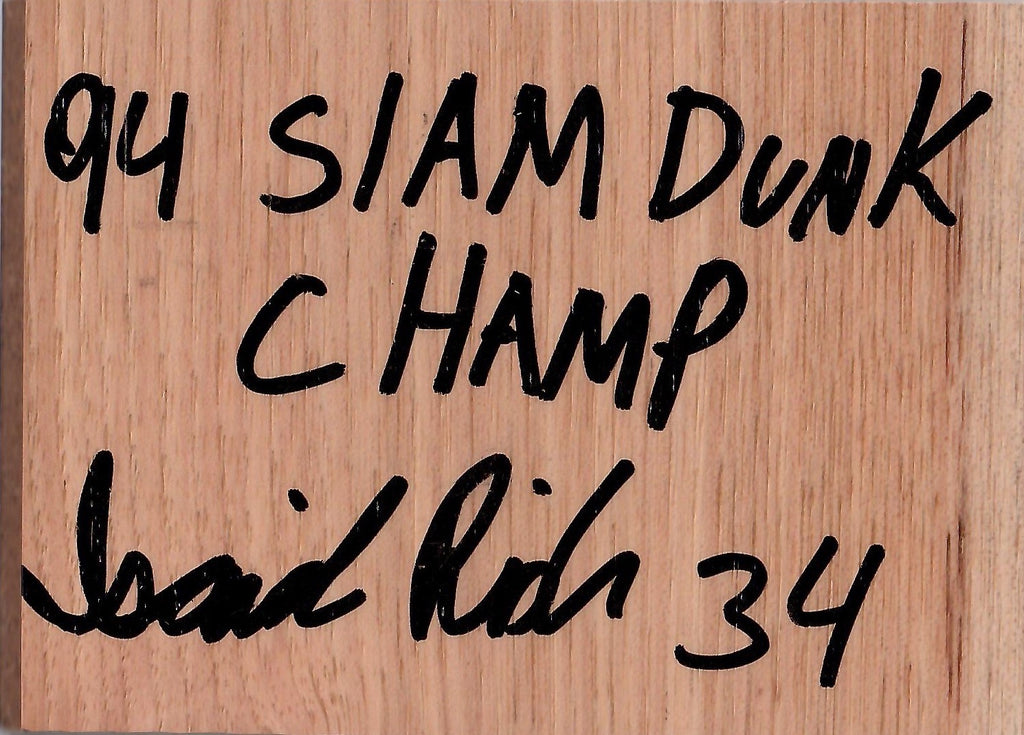 94 SlAM DUNK
CHAMP
Isaiah Rider 34